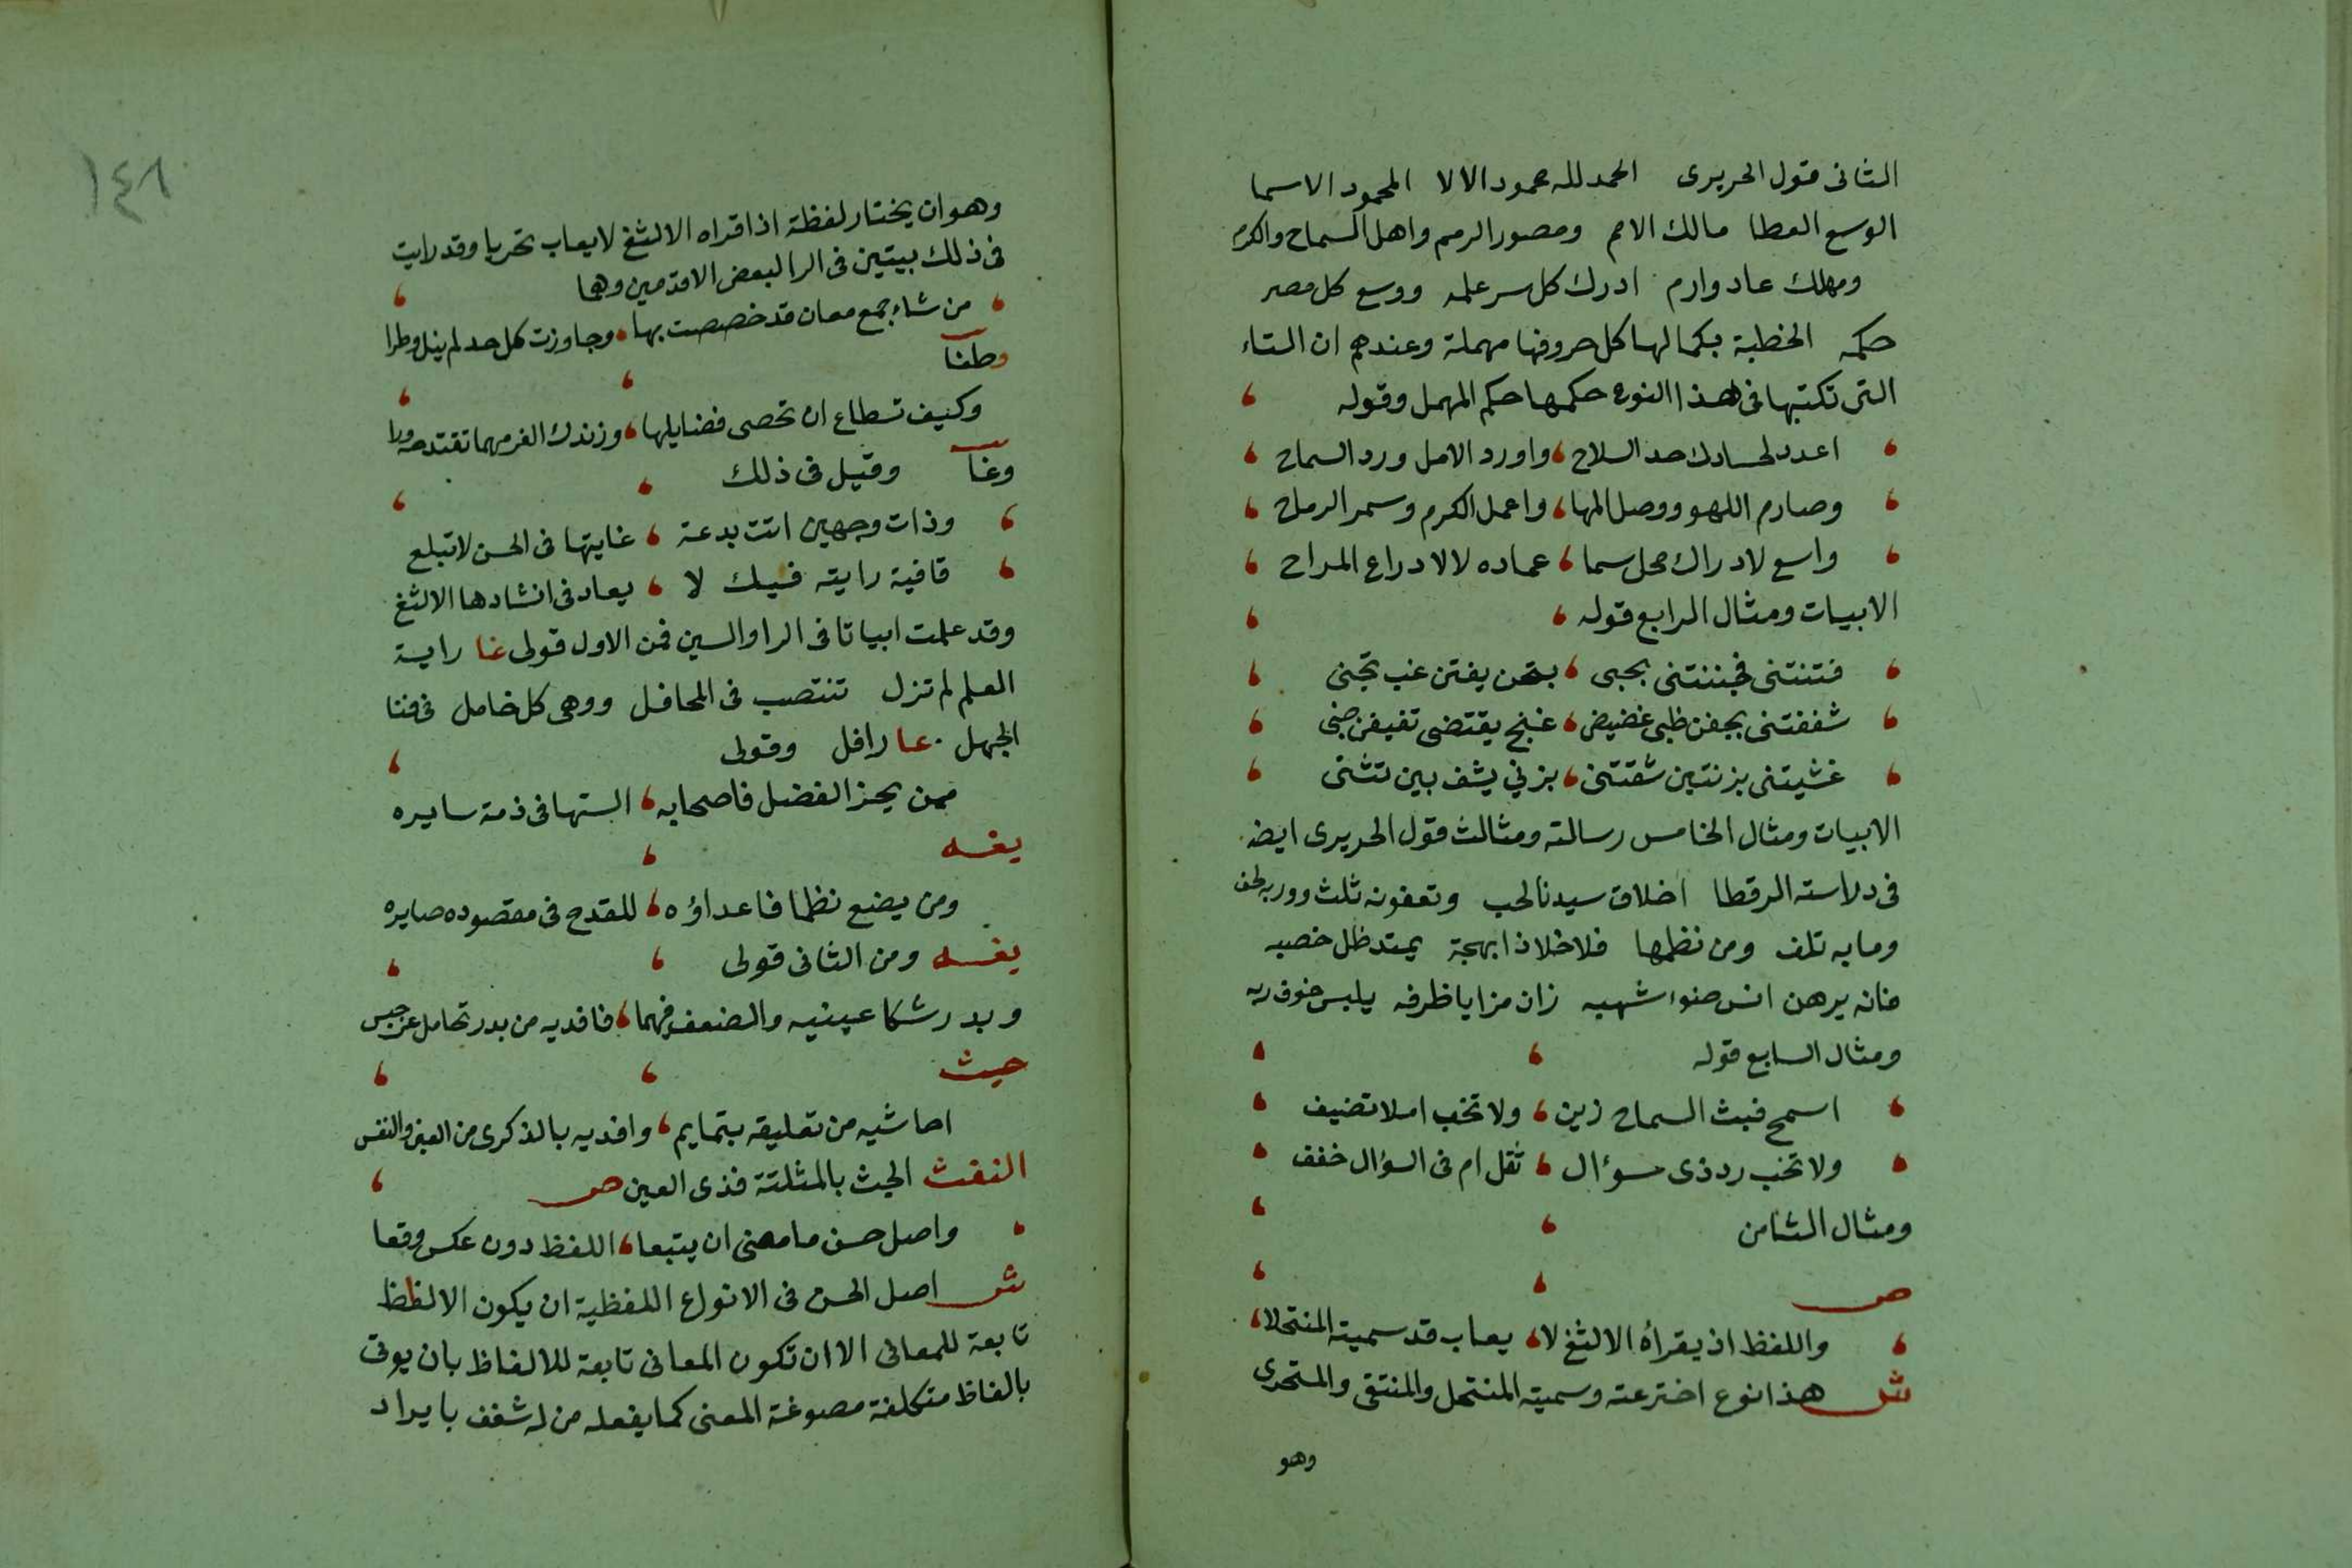 الثانى قول الحريرى الحمد لله ممدود الالا المحمود الاسما
الوسع العطا مالك الامم ومصور الرمم واهل السماح والكرم
ومهلك عاد وارم ادرك كل سر علمه ووسع كل مصر
حكمه الخطبة بكمالها كل حروفها مهملة وعندهم ان التاء
التى تكتبها فى هذا النوع حكمها حكم المهمل وقوله
اعدد لحسادك حد السلاح واورد الامل ورد السماح
وصارم اللهو ووصل المها واعمل الكرم وسمر الرماح
واسع لادراك محل سما عماده لا لادراع المراح
الابيات ومثال الرابع قوله
فتنتنى فجننتنى بجبى بتجن يفتن غب تجنى
شغفتنى بجفن ظبى غضيض غنج يقتضى تفيض جفنى
غشيتنى بزنتين شفتنى بزي يشف بين تثنى
الابيات ومثال الخامس رسالته ومثالث قول الحريرى ايض
فى دلاسته الرقطا اخلاق سيدنا لحب وتعفونه ثلث
ومابه تلف ومن نظمها فلا خلا ذا بهجة يمتد ظل خصبه
فانه يرهن انس ضواء شهبه زان مزايا ظرفه يلبس خوف ربه
ومثال السابع قوله
اسمح فبث السماح زين ولا تخب املا تضيف
ولا تخب رد ذى سؤال ثقل ام فى السؤال خفف
ومثال الثامن
ص
واللفظ اذ يقرأه الالثغ لا يعاب قد سميته المنتحلا
ش هذا نوع اخترعته وسميته المنتحل والمنتقى والمتحرى
وهو
١٤٦
وهو ان يختار لفظة اذا قراه الالثغ لا يعاب تحريا وقد رايت
فى ذلك بيتين فى الرا لبعض الاقدمين وهما
من شاء جمع معان قد خصصت بها وجاوزت كل حد لم ينل وطرا
وطغا
وكيف تسطاع ان تحصى فضايلها وزندك الغر مهما تقتدحه ورا
وغا وقيل فى ذلك
وذات وجهين اتت بدعة غايتها فى الحسن لا تبلغ
قافية رايته فيك لا يعاد فى انشادها الالثغ
وقد عملت ابياتا فى الرا والسين فمن الاول قولى غا راية
العلم لم تزل تنتصب فى المحافل ووهى كل خامل فى فنا
الجهل غا رافل وقولى
ممن يحز الفضل فاصحابه السنها فى ذمة سايره
يغه
ومن يضع نظما فاعداؤه للقدح فى مقصوده صايره
يغه ومن الثانى قولى
وبدر شكا عينيه والضعف فهما فافديه من بدر تحامل عن حبس
حيث
احاشيه من تعليقه بتمايم وافديه بالذكرى من العين والنفس
النفث الحيث بالمثلثة قذى العين ص
واصل حسن ما مضى ان يتبعا اللفظ دون عكس وقعا
ش اصل الحسن فى الانواع اللفظية ان يكون الالفاظ
تابعة للمعانى الا ان تكون المعانى تابعة للالفاظ بان يوتى
بالفاظ متكلفة مصوغة المعنى كما يفعله من له شغف بايراد